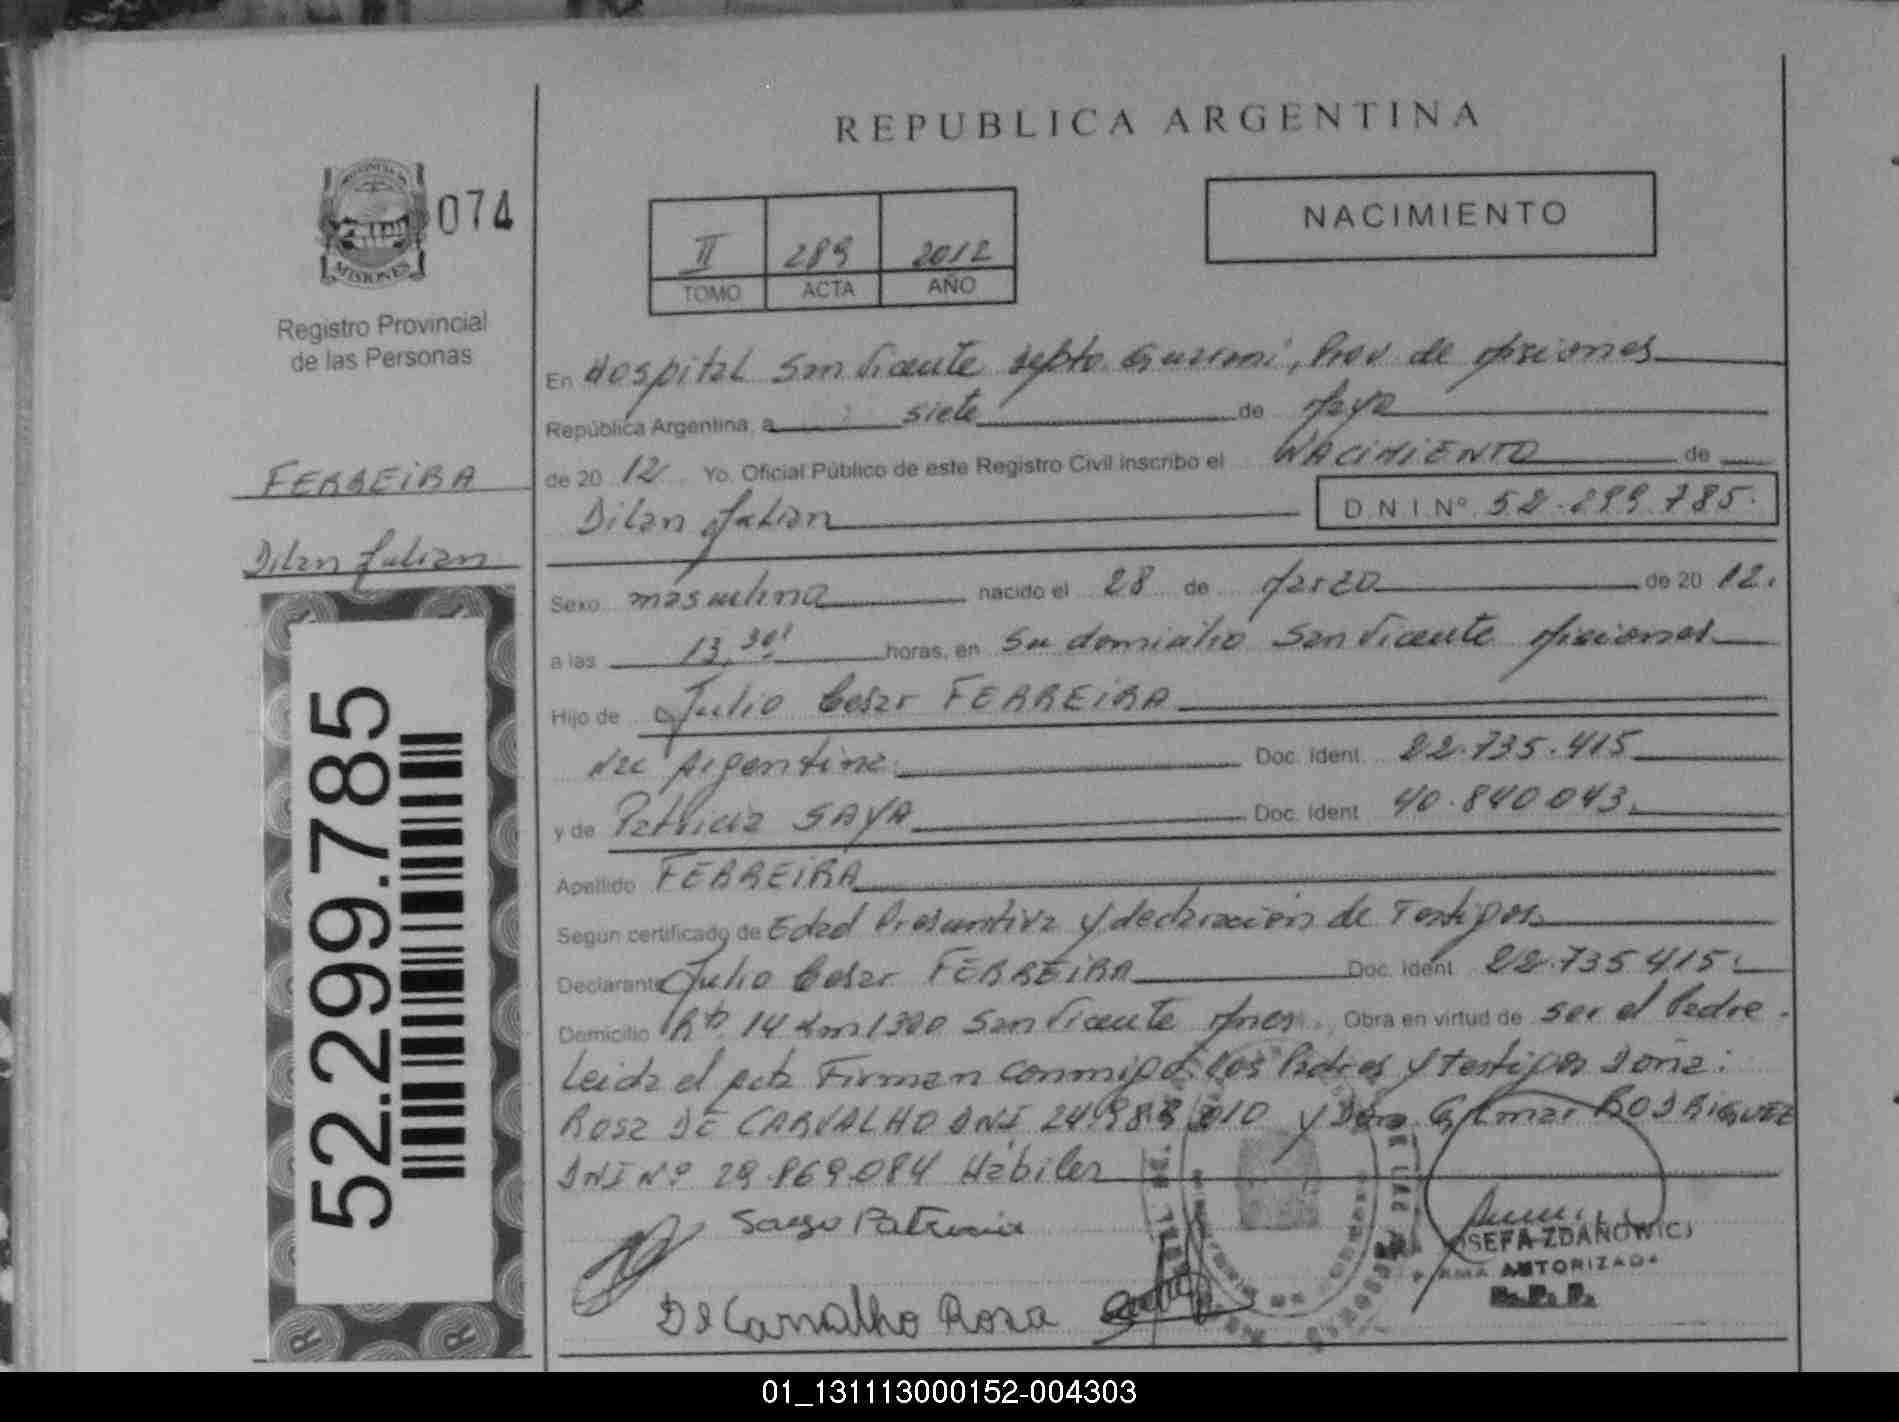 REPUBLICA ARGENTINA
PROVINCIA DE
MISIONES
074
Registro Provincial
de las Personas
FERREIRA
Dilan Julian
52.299.785
II 289 2012
TOMO ACTA AÑO
NACIMIENTO
En Hospital San Vicente Depto. Guarani, Prov. de Misiones
República Argentina, a siete de Mayo
de 20 12 Yo, Oficial Público de este Registro Civil inscribo el NACIMIENTO de
Dilan Julian D N I Nº 52.299.785.
Sexo masculino nacido el 28 de Marzo de 20 12.
a las 13,30' horas, en Su domicilio San Vicente Misiones
Hijo de Julio Cesar FERREIRA
Nac Argentina. Doc. Ident. 22.735.415
y de Patricia SAYA Doc. Ident 40.840.043.
Apellido FERREIRA
Según certificado de Edad Presuntiva y declaración de Testigos
Declarante Julio Cesar FERREIRA Doc. Ident 22.735.415.
Domicilio Rta. 14 Km 1300 San Vicente Mnes. Obra en virtud de ser el Padre.
Leida el Acta Firman conmigo. Los Padres y testigos Doña:
Rosa DE CARVALHO DNI y Don RODRIGUEZ
DNI Nº 29.869.084 Hábiles
Patricia
De Carvalho Rosa
SEFA ZDANOWIC
AUTORIZADA
01_131113000152-004303